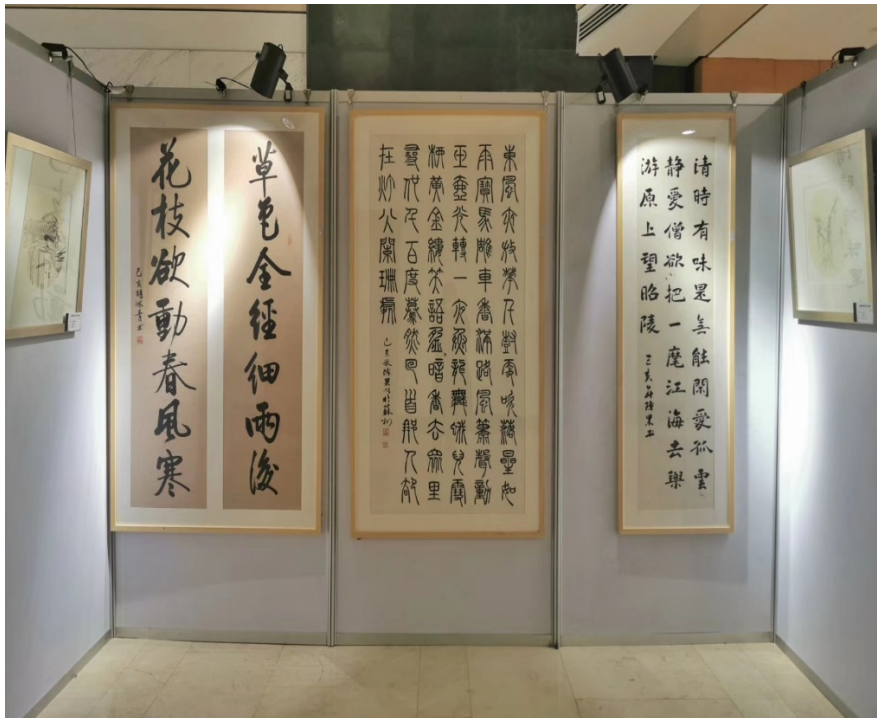 草色全經細雨後
花枝欲動春風寒
東風夜放華千樹更吹落星如
雨寶馬雕車香滿路鳳簫聲動
玉壺光轉一夜魚龍舞蛾兒雪
柳黃金縷笑語盈暗香去眾里
尋他千百度驀然回首那人卻
在燈火闌珊處
清時有味是無能閑愛孤雲
静愛僧欲把一麾江海去樂
游原上望昭陵